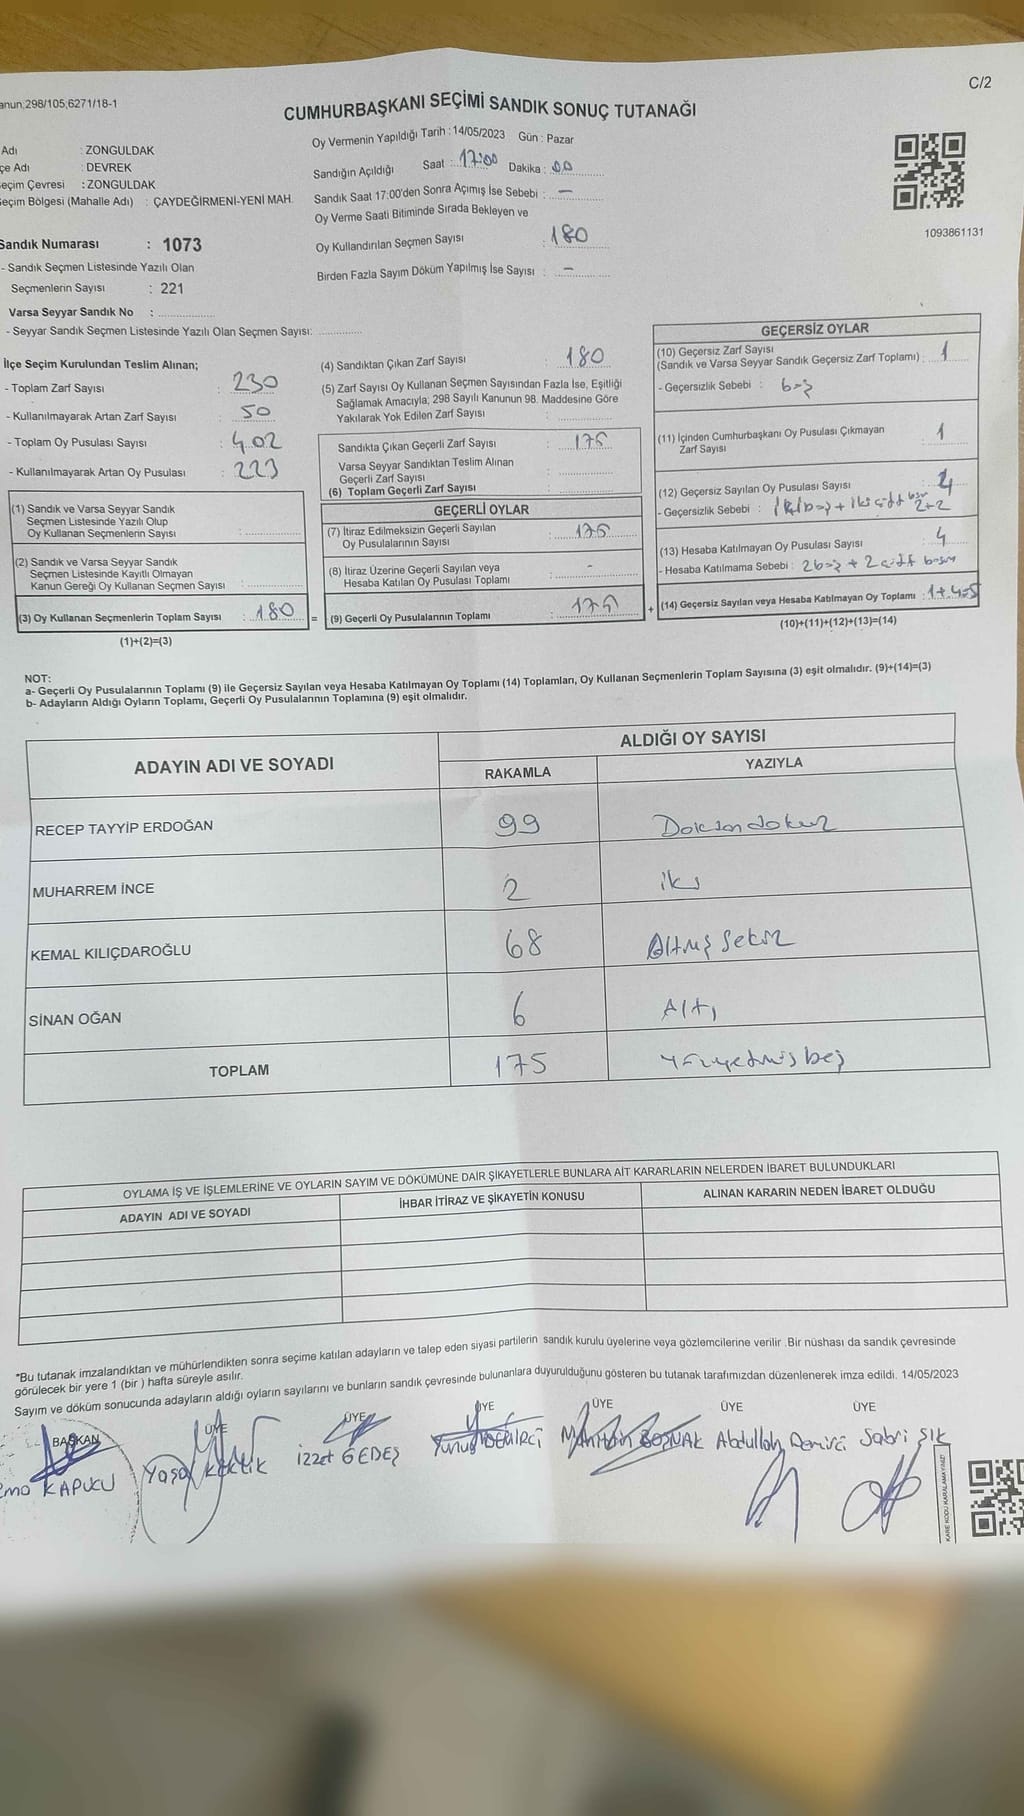 anun,298/105,6271/18-1
C/2
CUMHURBAŞKANI SEÇİMİ SANDIK SONUÇ TUTANAĞI
Adı : ZONGULDAK
çe Adı : DEVREK
eçim Çevresi : ZONGULDAK
eçim Bölgesi (Mahalle Adı) : ÇAYDEĞİRMENİ-YENİ MAH.
Sandık Numarası : 1073
- Sandık Seçmen Listesinde Yazılı Olan
Seçmenlerin Sayısı : 221
Varsa Seyyar Sandık No :
- Seyyar Sandık Seçmen Listesinde Yazılı Olan Seçmen Sayısı:
Oy Vermenin Yapıldığı Tarih : 14/05/2023 Gün : Pazar
Sandığın Açıldığı Saat : 17:00 Dakika : 00
Sandık Saat 17:00'den Sonra Açımış İse Sebebi : -
Oy Verme Saati Bitiminde Sırada Bekleyen ve
Oy Kullandırılan Seçmen Sayısı : 180
Birden Fazla Sayım Döküm Yapılmış İse Sayısı : -
1093861131
İlçe Seçim Kurulundan Teslim Alınan;
- Toplam Zarf Sayısı : 230
- Kullanılmayarak Artan Zarf Sayısı : 50
- Toplam Oy Pusulası Sayısı : 402
- Kullanılmayarak Artan Oy Pusulası : 223
(1) Sandık ve Varsa Seyyar Sandık
Seçmen Listesinde Yazılı Olup
Oy Kullanan Seçmenlerin Sayısı :
(2) Sandık ve Varsa Seyyar Sandık
Seçmen Listesinde Kayıtlı Olmayan
Kanun Gereği Oy Kullanan Seçmen Sayısı :
(3) Oy Kullanan Seçmenlerin Toplam Sayısı : 180 =
(1)+(2)=(3)
(4) Sandıktan Çıkan Zarf Sayısı : 180
(5) Zarf Sayısı Oy Kullanan Seçmen Sayısından Fazla İse, Eşitliği
Sağlamak Amacıyla; 298 Sayılı Kanunun 98. Maddesine Göre
Yakılarak Yok Edilen Zarf Sayısı :
Sandıkta Çıkan Geçerli Zarf Sayısı : 175
Varsa Seyyar Sandıktan Teslim Alınan
Geçerli Zarf Sayısı :
(6) Toplam Geçerli Zarf Sayısı :
GEÇERLİ OYLAR
(7) İtiraz Edilmeksizin Geçerli Sayılan
Oy Pusulalarının Sayısı : 175
(8) İtiraz Üzerine Geçerli Sayılan veya
Hesaba Katılan Oy Pusulası Toplamı : -
(9) Geçerli Oy Pusulalarının Toplamı : 175 +
GEÇERSİZ OYLAR
(10) Geçersiz Zarf Sayısı
(Sandık ve Varsa Seyyar Sandık Geçersiz Zarf Toplamı) : 1
- Geçersizlik Sebebi : boş
(11) İçinden Cumhurbaşkanı Oy Pusulası Çıkmayan
Zarf Sayısı : 1
(12) Geçersiz Sayılan Oy Pusulası Sayısı : 4
- Geçersizlik Sebebi : boş + iki çift 2+2
(13) Hesaba Katılmayan Oy Pusulası Sayısı : 4
- Hesaba Katılmama Sebebi : 2 boş + 2 çift basım
(14) Geçersiz Sayılan veya Hesaba Katılmayan Oy Toplamı : 1+4=5
(10)+(11)+(12)+(13)=(14)
NOT:
a- Geçerli Oy Pusulalarının Toplamı (9) ile Geçersiz Sayılan veya Hesaba Katılmayan Oy Toplamı (14) Toplamları, Oy Kullanan Seçmenlerin Toplam Sayısına (3) eşit olmalıdır. (9)+(14)=(3)
b- Adayların Aldığı Oyların Toplamı, Geçerli Oy Pusulalarının Toplamına (9) eşit olmalıdır.
ADAYIN ADI VE SOYADI
ALDIĞI OY SAYISI
RAKAMLA YAZIYLA
RECEP TAYYİP ERDOĞAN 99 Doksandokuz
MUHARREM İNCE 2 iki
KEMAL KILIÇDAROĞLU 68 Altmış sekiz
SİNAN OĞAN 6 Altı
TOPLAM 175 Yüzyetmişbeş
OYLAMA İŞ VE İŞLEMLERİNE VE OYLARIN SAYIM VE DÖKÜMÜNE DAİR ŞİKAYETLERLE BUNLARA AİT KARARLARIN NELERDEN İBARET BULUNDUKLARI
ADAYIN ADI VE SOYADI İHBAR İTİRAZ VE ŞİKAYETİN KONUSU ALINAN KARARIN NEDEN İBARET OLDUĞU
*Bu tutanak imzalandıktan ve mühürlendikten sonra seçime katılan adayların ve talep eden siyasi partilerin sandık kurulu üyelerine veya gözlemcilerine verilir .Bir nüshası da sandık çevresinde
görülecek bir yere 1 (bir ) hafta süreyle asılır.
Sayım ve döküm sonucunda adayların aldığı oyların sayılarını ve bunların sandık çevresinde bulunanlara duyurulduğunu gösteren bu tutanak tarafımızdan düzenlenerek imza edildi. 14/05/2023
BAŞKAN ÜYE ÜYE ÜYE ÜYE ÜYE ÜYE
KAPUCU Yaşar İzzet GEDEŞ Yunus Abdullah Demirci Sabri ŞIK
KARE KODU KARALAMAYINIZ!